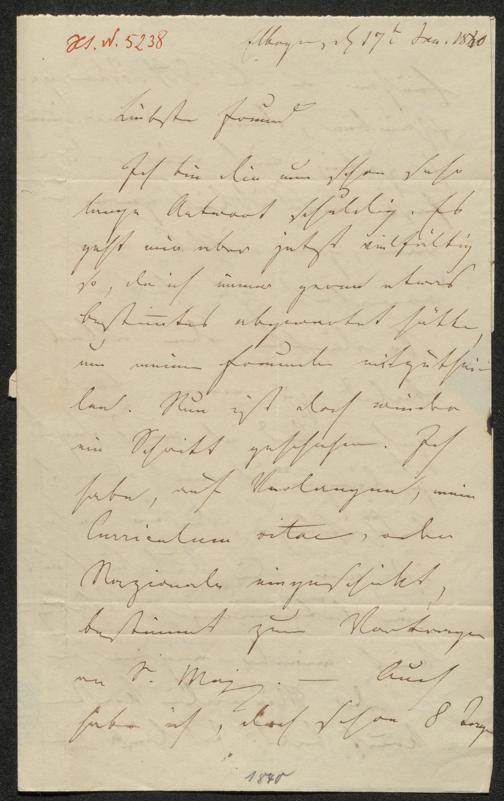 Hs. N. 5238
Elbogen, d. 17t Jan. 1840
Liebster Freund
Ich bin dir nun schon sehr
lange Antwort schuldig. Es
geht mir aber jetzt vielfältig
so, da ich immer gerne etwas
bestimmtes abgewartet hätte,
um meinen Freunden mitzuthei-
len. Nun ist doch wieder
ein Schritt geschehen. Ich
habe, auf Verlangen, mein
Curriculum vitae, oder
Nazionale eingeschikt,
bestimmt zum Vortragen
an S. Maj. — Auch
habe ich, doch schon 8 Tage
1840